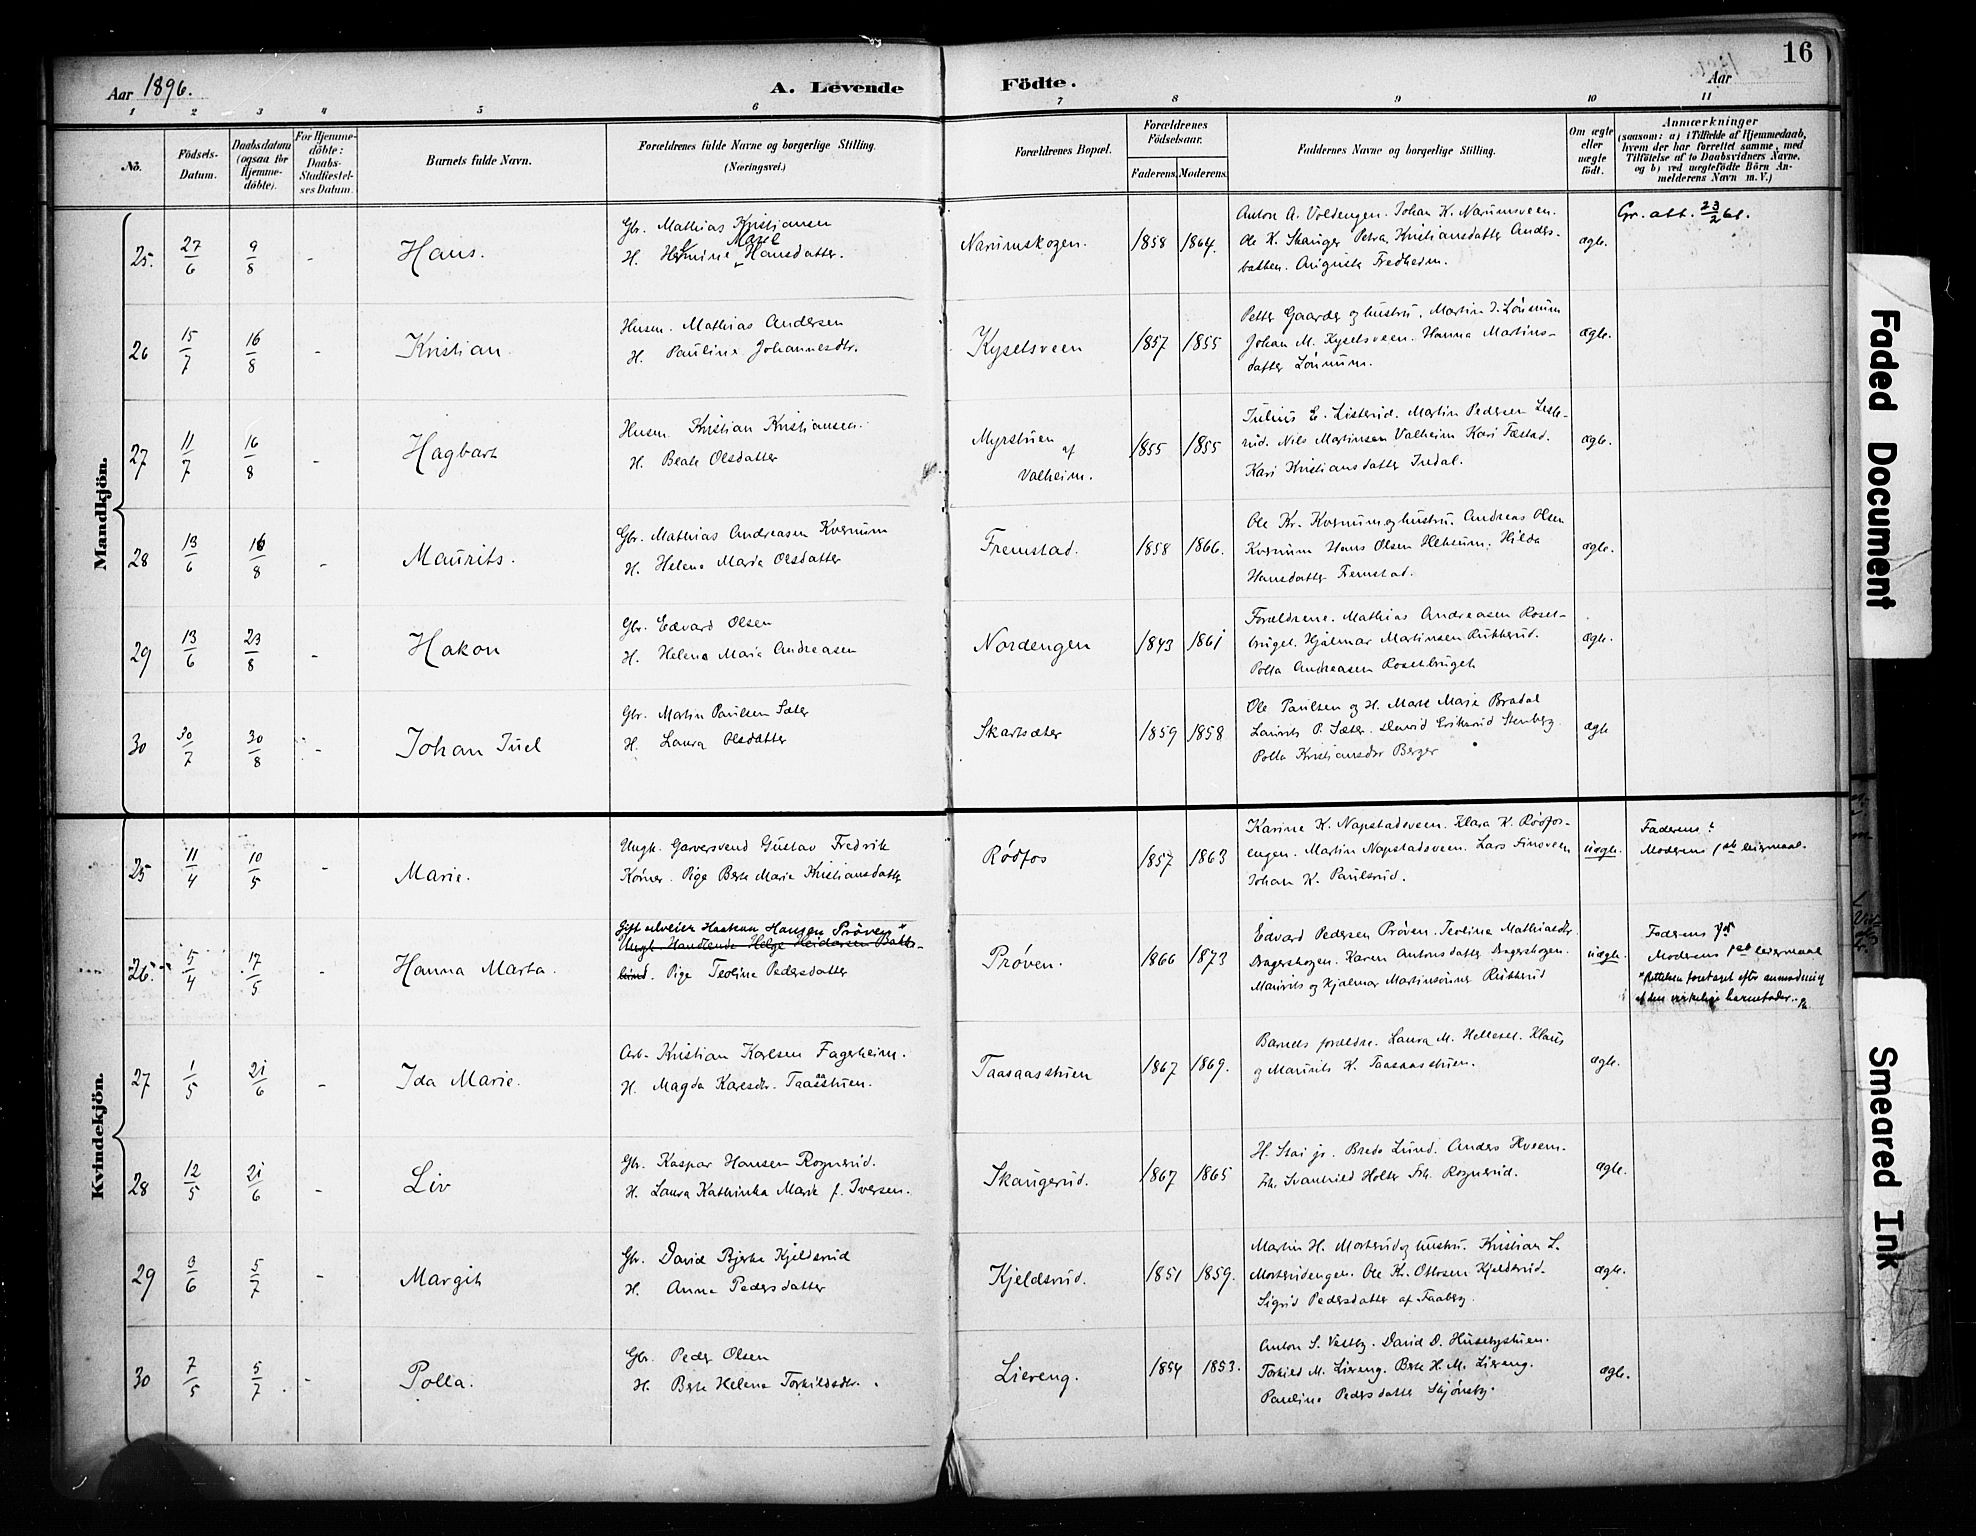 16
Aar 1896. A. Levende Födte. Aar
1 2 3 4 5 6 7 8 9 10 11
Nō. Födsels-Datum. Daabsdatum (ogsaa for Hjemme-döbte). For Hjemme-döbte: Daabs-Stadfæstel-ses Datum. Barnets fulde Navn. Forældrenes fulde Navne og borgerlige Stilling. (Næringsvei.) Forældrenes Bopæl. Forældrenes Födselsaar. Faderens. Moderens. Faddernes Navne og borgerlige Stilling. Om ægte eller uægte födt. Anmærkninger (saasom: a) i Tilfælde af Hjemmedaab, hvem der har forrettet samme, med Tilföielse af to Daabsvidners Navne, og b) ved uægtefödte Börn An-melderens Navn m. V.)
Mandkjön.
25. 27/6 9/8 - Hans. Gbr. Mathias Kristiansen
H. Hermine Hansdatter. Narumskogen. 1858 1864. Anton A. Voldengen. Johan K. Narumsveen.
Ole K. Skauger Petra Kristiansdatter Anders-
bakken. Augusta Fredheim. ægte. Gr. att. 23/2 61.
26 15/7 16/8 - Kristian. Husm. Mathias Andersen
H. Pauline Johannesdtr. Kyselsveen 1857 1855 Petter Gaarder og hustru. Martin J. Lönnum
Johan M. Kyselsveen. Hanna Martins-
datter Lönnum. ægte.
27 11/7 16/8 - Hagbart Husm. Kristian Kristiansen.
H. Beate Olsdatter Myrstuen
af
Valheim. 1855 1855 Julius E. Listerud. Martin Pedersen Liste-
rud. Nils Martinsen Valheim Kari Fæstad.
Kari Kristiansdatter Iredal. ægte.
28 13/6 16/8 - Maurits. Gbr. Mathias Andreasen Kvernum
H. Helene Marie Olsdatter Fremstad. 1858 1866. Ole Kr. Kvernum og hustru. Andreas Olsen
Kvernum Hans Olsen Helsum. Hilda
Hansdatter Fremstad. ægte.
29 13/6 23/8 - Hakon Gbr. Edvard Olsen
H. Helene Marie Andreasen Nordengen 1843 1861 Forældrene. Mathias Andreasen Roset-
bruget. Hjalmar Martinsen Rubberud.
Polla Andreasen Rosetbruget ægte.
30 30/7 30/8 - Johan Juel Gbr. Martin Paulsen Sæter
H. Laura Olsdatter Skartsæter 1859 1858 Ole Paulsen og H. Mart Marie Bradal
Laurits P. Sæter. David Eriksrud Stenberg.
Polla Kristiansdtr Berger ægte
Kvindekjön.
25 11/4 10/5 - Marie. Ungk. Garversvend Gustav Fredrik
Körner. Pige Berte Marie Kristiansdatter Rödfos 1857 1863 Karine K. Napstadsveen. Klara K. Rödfos-
engen. Martin Napstadsveen. Lars Finsveen
Johan K. Paulsrud. uægte. Faderens ?
Moderens 1ste leiermaal.
26. 5/4 17/5 - Hanna Marta. Gift arbeider Haakon Hansen Pröven"
Ungk. Handlende Helge Heidersen Bakke-
lund. Pige Teoline Pedersdatter Pröven. 1866 1873 Edvard Pedersen Pröven. Teoline Mathiasdtr.
Dragershagen. Karen Antonsdatter Dragershagen.
Maurits og Hjalmar Martinsönner Rubberud uægte. Faderens
Moderens 1ste leiermaal
"Rettelsen foretaget efter anmodning
af den virkelige barnefader.
27 1/5 21/6 - Ida Marie. Arb. Kristian Karlsen Fagerheim.
H. Magda Karlsdtr. Taasaasstuen. Taasaasstuen 1867 1869. Barnets foreldre. Laura M. Helleset. Klaus
og Maurits K. Taasaasstuen. ægte.
28 12/5 21/6 - Liv Gbr. Kaspar Hansen Rognerud.
H. Laura Kathinka Marie f. Iversen. Skaugerud. 1867 1865 H. Stai jr. Brede Lund. Anders Hveem.
Frk. Svanhild Holter Frk. Rognerud. ægte.
29 9/6 5/7 - Margit Gbr. David Bjerke Kjeldsrud
H. Anne Pedersdatter Kjeldsrud. 1851 1859. Martin H. Morterud og hustru. Kristian L.
Morterudengen. Ole Kr. Ottosen Kjeldsrud.
Sigrid Pedersdatter af Faaberg. ægte.
30 7/5 5/7 - Polla. Gbr. Peder Olsen
H. Berte Helene Torkildsdtr. Liereng. 1854 1853. Anton S. Vestby. David D. Husebystuen.
Torkild M. Liereng. Berte H. M. Liereng.
Pauline Pedersdatter Skjönsby. ægte.
Faded Document
Smeared Ink